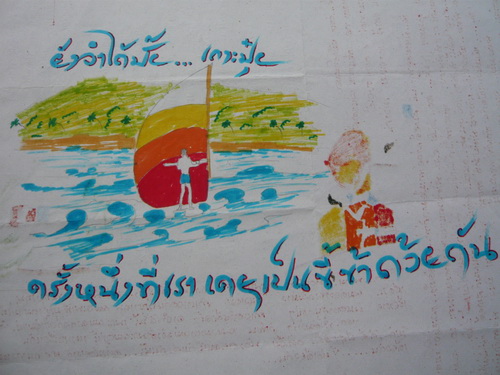 ยังจำได้มั้ย... เกาะปุ๋ย
ครั้งหนึ่งที่เรา เคยเป็นขี้ข้าด้วยกัน